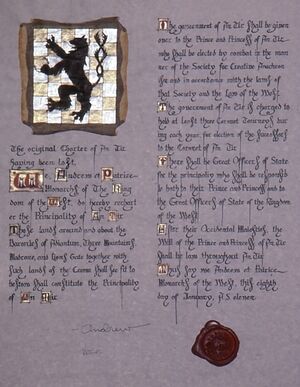 The original Charter of An Tir
having been lost,
We, Andrew et Patrice—
Monarchs of The King
dom of the West, do hereby rechart
er the Principality of An Tir
Those lands around and about the
Baronies of Adiantum, Three Mountains,
Madrone, and Lions Gate together with
such lands of the Crown shall see fit to
bestow shall constitute the Principality
of An Tir
The government of An Tir shall be given
over to the Prince and Princess of An Tir
who shall be elected by combat in the man
ner of the Society for Creative Anachron
ism and in accordance with the laws of
that Society and the Law of the West.
The government of An Tir is charged to
hold at least three Coronet Tourneys dur
ing each year, for election of the successors
to the Coronet of An Tir
There shall be Great Officers of State
for the principality who shall be responsib
le both to their Prince and Princess and to
the Great Officers of State of the Kingdom
of the West
As for their Occidental Majesties, the
Will of the Prince and Princess of An Tir
shall be law throughout An Tir
Thus say we Andrew et Patrice
Monarchs of the West, this eighth
day of January, A.S. eleven
Andrew